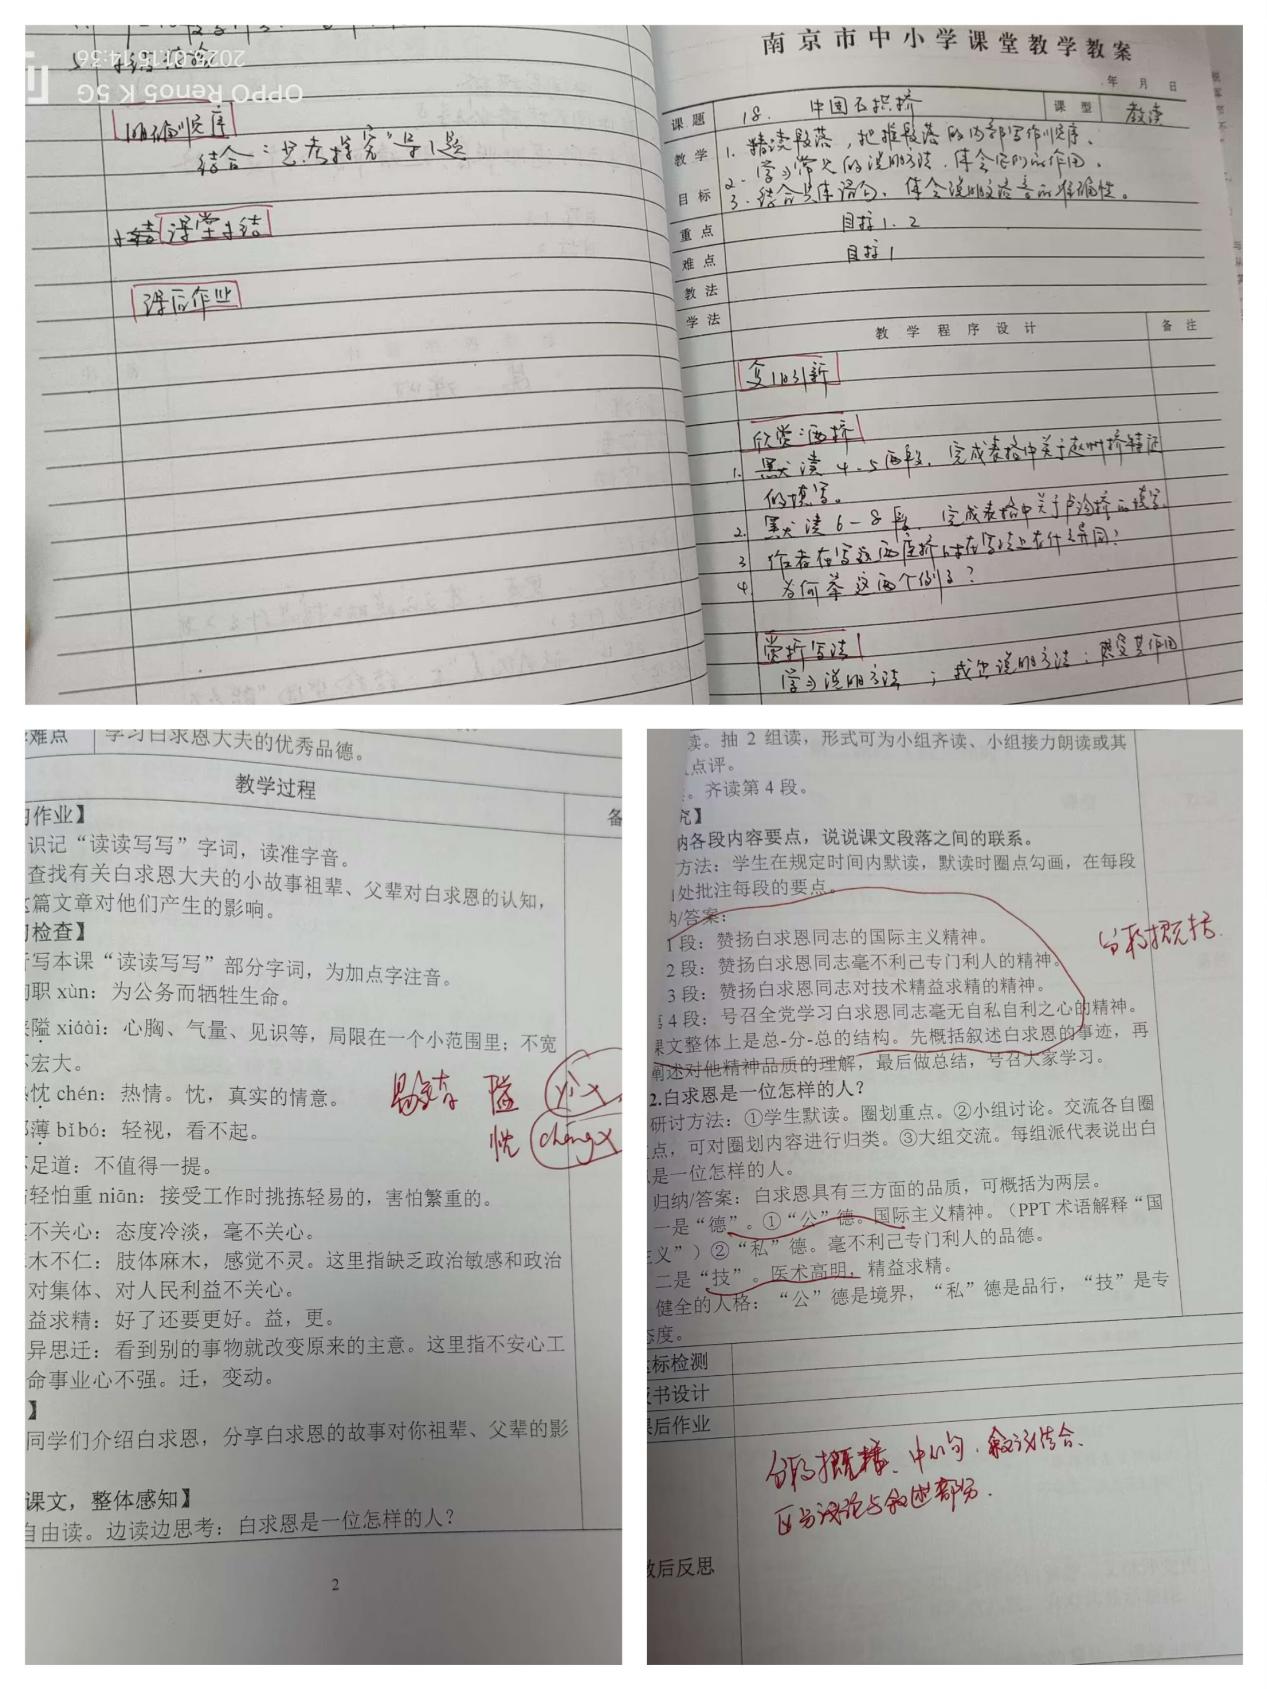 5 小结记忆
2023.11.15 14:36
OPPO Reno5 K 5G
明确顺序
结合“思考探究”第1题
课堂小结
课后作业
南京市中小学课堂教学教案
年 月 日
课题 18. 中国石拱桥 课型 教读
教学目标 1. 精读段落,把握段落的内部写作顺序、
2. 学习常见的说明方法,体会它们的作用。
3. 结合具体语句,体会说明文语言的准确性。
重点 目标1、2
难点 目标1
教法
学法
教学程序设计 备注
复旧引新
欣赏两桥
1. 默读4-5两段,完成表格中关于赵州桥特征
的填写。
2. 默读6-8段,完成表格中关于卢沟桥的填写。
3 作者在写这两座桥时在写法上有什么异同?
4. 为何举这两个例子?
赏析写法
学习说明方法;找出说明方法;感受其作用
难点 学习白求恩大夫的优秀品德。
教学过程
备
作业】
识记“读读写写”字词,读准字音。
查找有关白求恩大夫的小故事祖辈、父辈对白求恩的认知,
这篇文章对他们产生的影响。
检查】
写本课“读读写写”部分字词,为加点字注音。
职 xùn:为公务而牺牲生命。
隘 xiáài:心胸、气量、见识等,局限在一个小范围里;不宽
宏大。
忱 chén:热情。忱,真实的情意。
薄 bǐbó:轻视,看不起。
足道:不值得一提。
轻怕重 niān:接受工作时挑拣轻易的,害怕繁重的。
不关心:态度冷淡,毫不关心。
木不仁:肢体麻木,感觉不灵。这里指缺乏政治敏感和政治
对集体、对人民利益不关心。
益求精:好了还要更好。益,更。
异思迁:看到别的事物就改变原来的主意。这里指不安心工
命事业心不强。迁,变动。
】
同学们介绍白求恩,分享白求恩的故事对你祖辈、父辈的影
课文,整体感知】
自由读。边读边思考:白求恩是一位怎样的人?
2
易错 隘
忱 chēng x
读。抽 2 组读,形式可为小组齐读、小组接力朗读或其
点评。
。齐读第 4 段。
究】
纳各段内容要点,说说课文段落之间的联系。
方法:学生在规定时间内默读,默读时圈点勾画,在每段
处批注每段的要点。
纳/答案:
1 段:赞扬白求恩同志的国际主义精神。
2 段:赞扬白求恩同志毫不利己专门利人的精神。
3 段:赞扬白求恩同志对技术精益求精的精神。
第 4 段:号召全党学习白求恩同志毫无自私自利之心的精神。
课文整体上是总-分-总的结构。先概括叙述白求恩的事迹,再
阐述对他精神品质的理解,最后做总结,号召大家学习。
2.白求恩是一位怎样的人?
研讨方法:①学生默读。圈划重点。②小组讨论。交流各自圈
点,可对圈划内容进行归类。③大组交流。每组派代表说出白
是一位怎样的人。
归纳/答案:白求恩具有三方面的品质,可概括为两层。
一是“德”。①“公”德。国际主义精神。(PPT 术语解释“国
主义”)②“私”德。毫不利己专门利人的品德。
二是“技”。医术高明,精益求精。
健全的人格:“公”德是境界,“私”德是品行,“技”是专
态度。
达标检测
板书设计
课后作业
教后反思
分段概括.
分段概括、中心句、叙议结合、
区分议论与叙述部分.